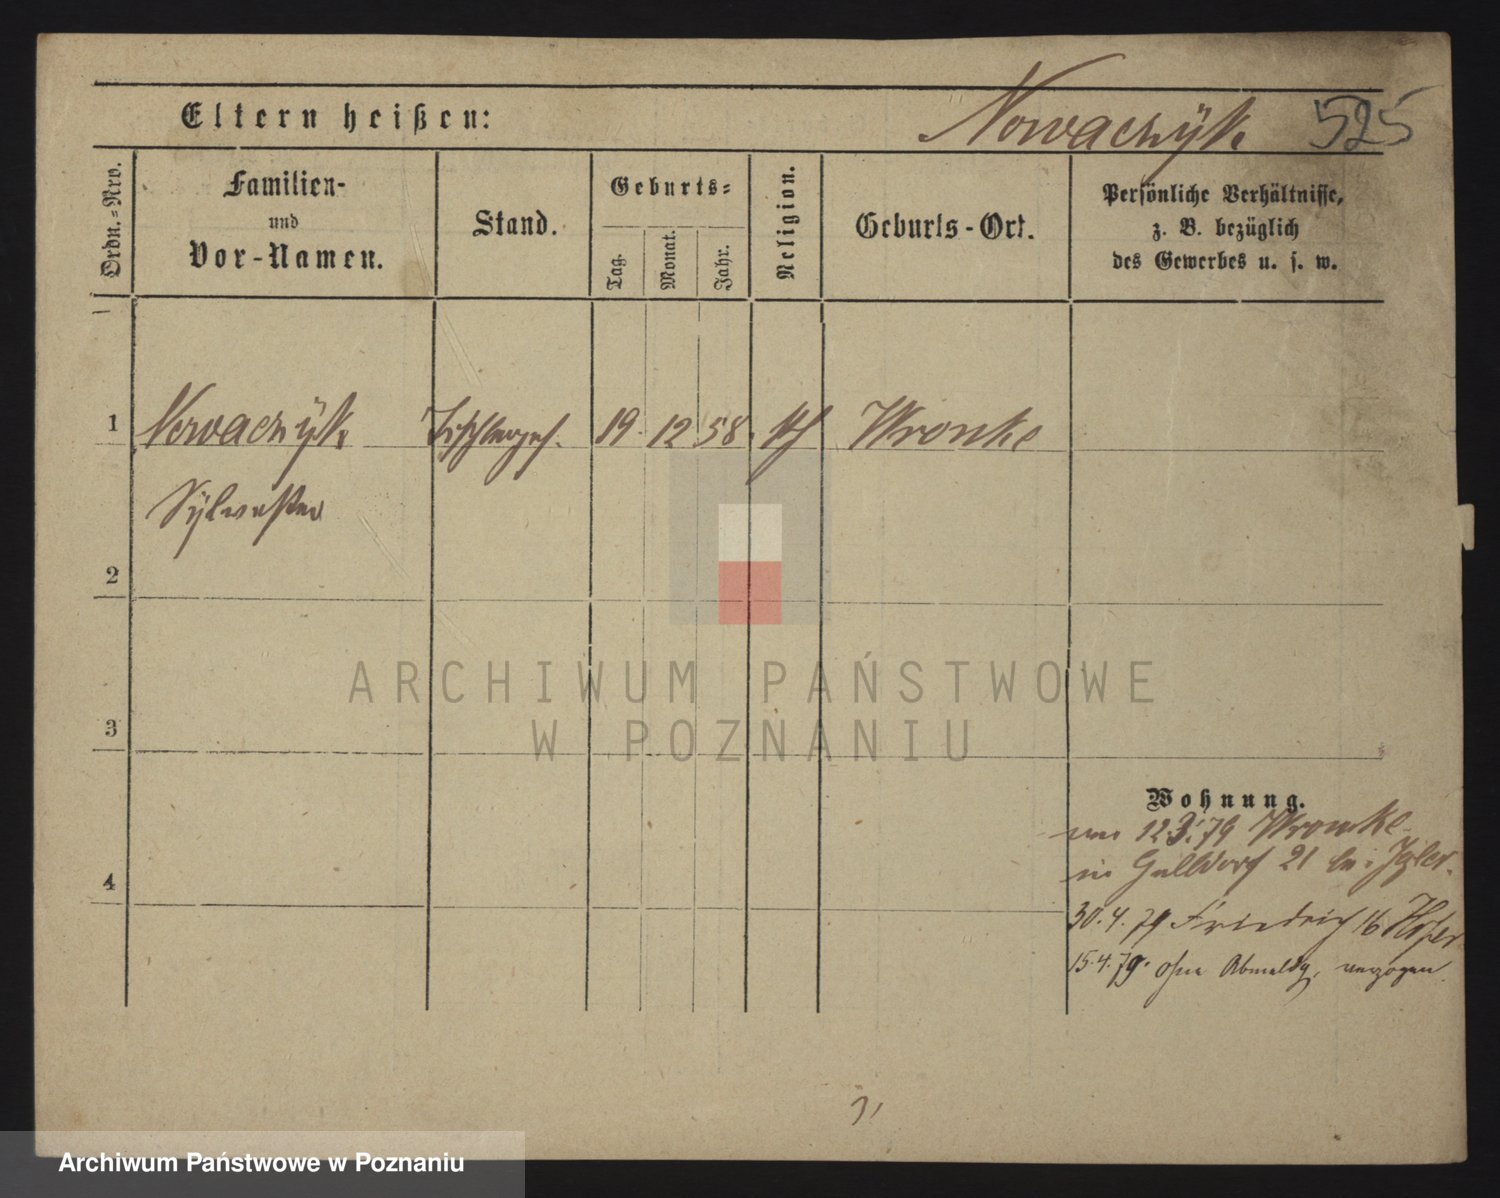 Eltern heißen:
Nowaczÿk 525
Ordn.-Nro.
Familien-
und
Vor-Namen.
Stand.
Geburts-
Tag.
Monat.
Jahr.
Religion.
Geburts-Ort.
Persönliche Verhältnisse,
z. B. bezüglich
des Gewerbes u. s. w.
1 Nowaczÿk Tischlerges. 19. 12 58. kth Wronke
Sÿlvester
2
3
4
Wohnung.
von 12.3.79 Wronke
in Halldorf 21 bei
30.4.79 Friedrich 16
15.4.79. ohne Abmeldg. verzogen.
ARCHIWUM PAŃSTWOWE
W POZNANIU
Archiwum Państwowe w Poznaniu